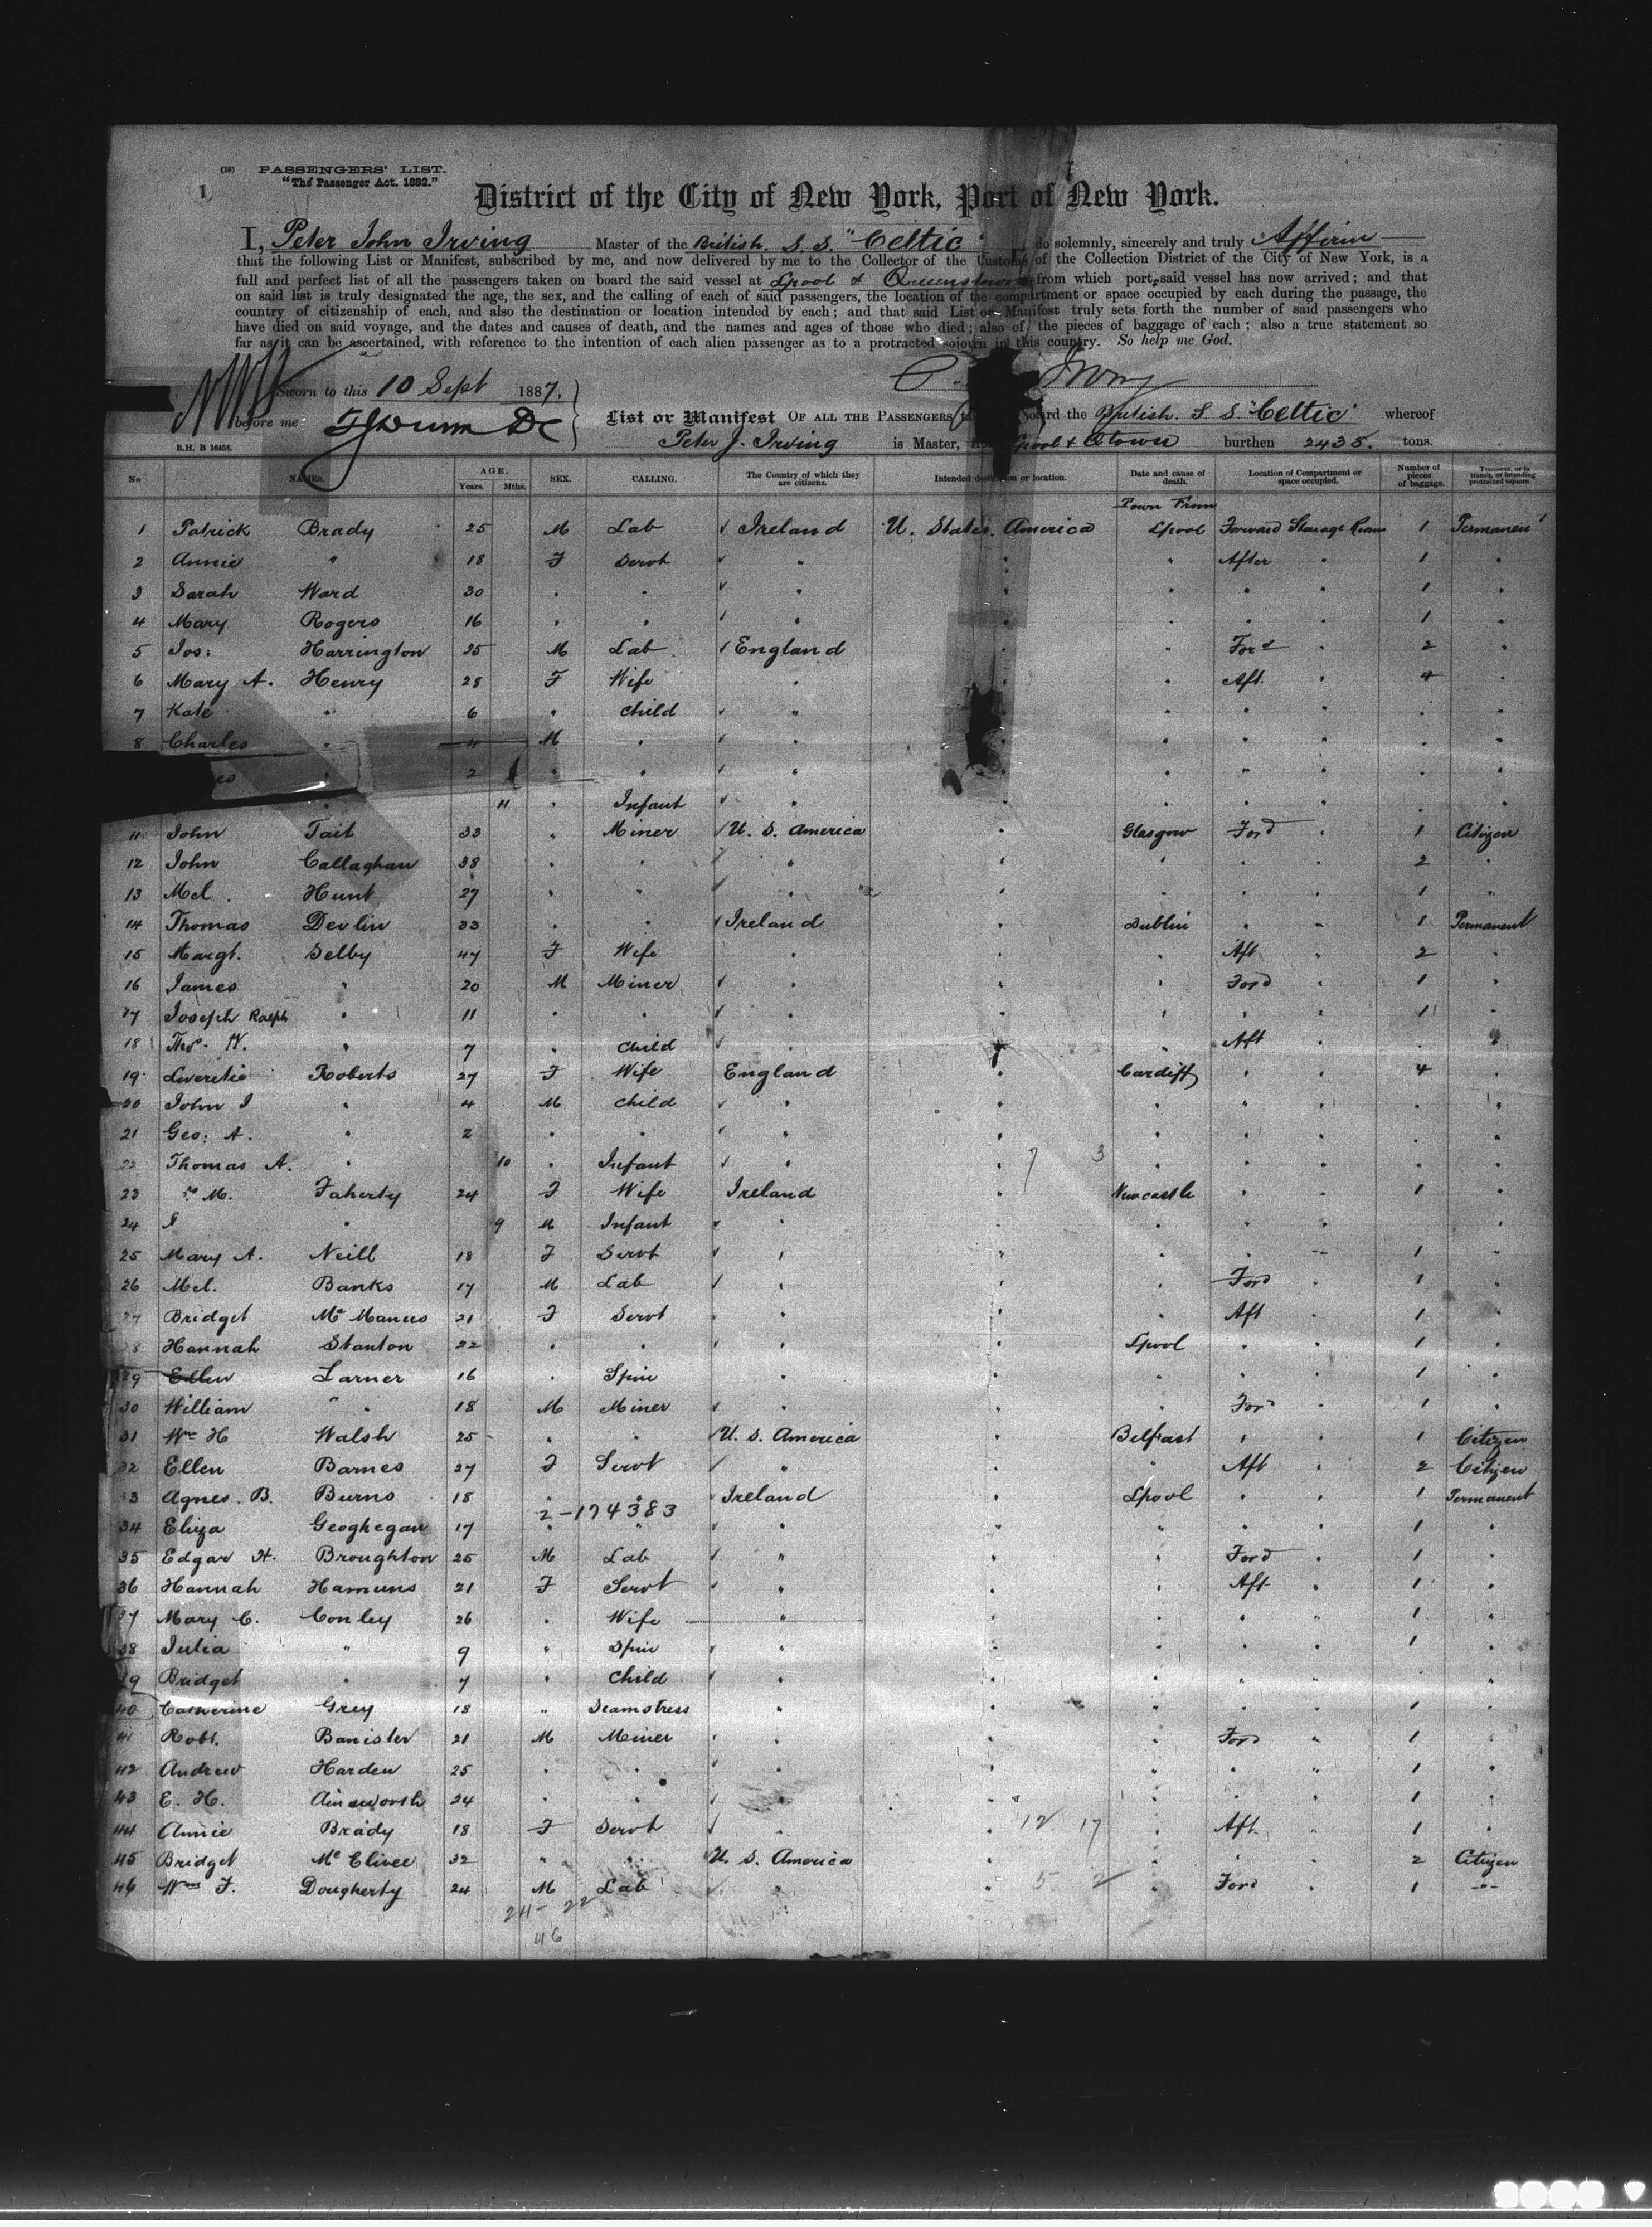 (18) PASSENGERS' LIST.
1 "The Passenger Act. 1882."
District of the City of New York, Port of New York.
I, Peter John Irving Master of the British. S. S. "Celtic" do solemnly, sincerely and truly Affirm
that the following List or Manifest, subscribed by me, and now delivered by me to the Collector of the Customs of the Collection District of the City of New York, is a
full and perfect list of all the passengers taken on board the said vessel at Lpool & Queenstown from which port, said vessel has now arrived; and that
on said list is truly designated the age, the sex, and the calling of each of said passengers, the location of the compartment or space occupied by each during the passage, the
country of citizenship of each, and also the destination or location intended by each; and that said List or Manifest truly sets forth the number of said passengers who
have died on said voyage, and the dates and causes of death, and the names and ages of those who died; also of the pieces of baggage of each; also a true statement so
far as it can be ascertained, with reference to the intention of each alien passenger as to a protracted sojourn in this country. So help me God.
Sworn to this 10 Sept 1887,
before me
List or Manifest OF ALL THE PASSENGERS board the British. S. S. "Celtic" whereof
R.H. B 16456. Peter J. Irving is Master, Lpool & Qtown burthen 2435. tons.
No NAMES. AGE. Years. Mths. SEX. CALLING. The Country of which they are citizens. Intended destination or location. Date and cause of death. Location of Compartment or space occupied. Number of pieces of baggage. Transient, or in transit, or intending protracted sojourn
Town From
1 Patrick Brady 25 M Lab Ireland U. States. America Lpool Forward Steerage 1 Permanent
2 Annie " 18 F Servt " " " After " 1 "
3 Sarah Ward 30 " " " " " " " 1 "
4 Mary Rogers 16 " " " " " " " 1 "
5 Jos: Harrington 25 M Lab England " " Ford " 2 "
6 Mary A. Henry 28 F Wife " " " Aft. " 4 "
7 Kate " 6 " Child " " " " " " "
8 Charles " 4 M " " " " " " " "
es " 2 " " " " " " " " "
" 11 " Infant " " " " " " "
11 John Tait 33 " Miner U. S. America " Glasgow Ford " 1 Citizen
12 John Callaghan 38 " " " " " " " 2 "
13 Mcl. Hunt 27 " " " " " " " 1 "
14 Thomas Devlin 33 " " Ireland " Dublin " " 1 Permanent
15 Margt. Selby 47 F Wife " " " Aft " 2 "
16 James " 20 M Miner " " " Ford " 1 "
17 Joseph Ralph " 11 " " " " " " " 1 "
18 Thos. W. " 7 " Child " " " Aft " "
19 Roberts 27 F Wife England " Cardiff " " 4 "
20 John J " 4 M Child " " " " " " "
21 Geo: A. " 2 " " " " " " " " "
Thomas A. " 10 " Infant " " 7 3 " " " " "
23 M. Faherty 24 F Wife Ireland " Newcastle " " 1 "
24 J " 9 M Infant " " " " " "
25 Mary A. Neill 18 F Servt " " " " " 1 "
26 Mcl. Banks 17 M Lab " " " Ford " 1 "
27 Bridget Mc Manus 21 F Servt " " " Aft " 1 "
28 Hannah Stanton 22 " " " " Lpool " " 1 "
29 Ellen Larner 16 " Spin " " " " " 1 "
30 William " 18 M Miner " " " Ford " 1 "
31 Wm H Walsh 25 " " U. S. America " Belfast " " 1 Citizen
32 Ellen Barnes 27 F Servt " " " Aft " 2 Citizen
33 Agnes. B. Burns 18 " " Ireland " Lpool " " 1 Permanent
2-174383
34 Eliza Geoghegan 17 " " " " " " " 1 "
35 Edgar H. Broughton 25 M Lab " " " Ford " 1 "
36 Hannah 21 F Servt " " " Aft " 1 "
37 Mary C. Conley 26 " Wife " " " " " 1 "
38 Julia " 9 " Spin " " " " " 1 "
39 Bridget " 7 " Child " " " " " "
40 Catherine Grey 18 " Seamstress " " " " " 1 "
41 Robt. Banister 21 M Miner " " " Ford " 1 "
42 Andrew Harden 25 " " " " " " " 1 "
43 E. H. Ainsworth 24 " " " " " " " 1 "
44 Annie Brady 18 F Servt " " 12 17 " Aft. " 1 "
45 Bridget 32 " " U. S. America " " " " 2 Citizen
46 Wm F. Dougherty 24 M Lab " " 5 2 " Ford " 1 "
24 - 22
46